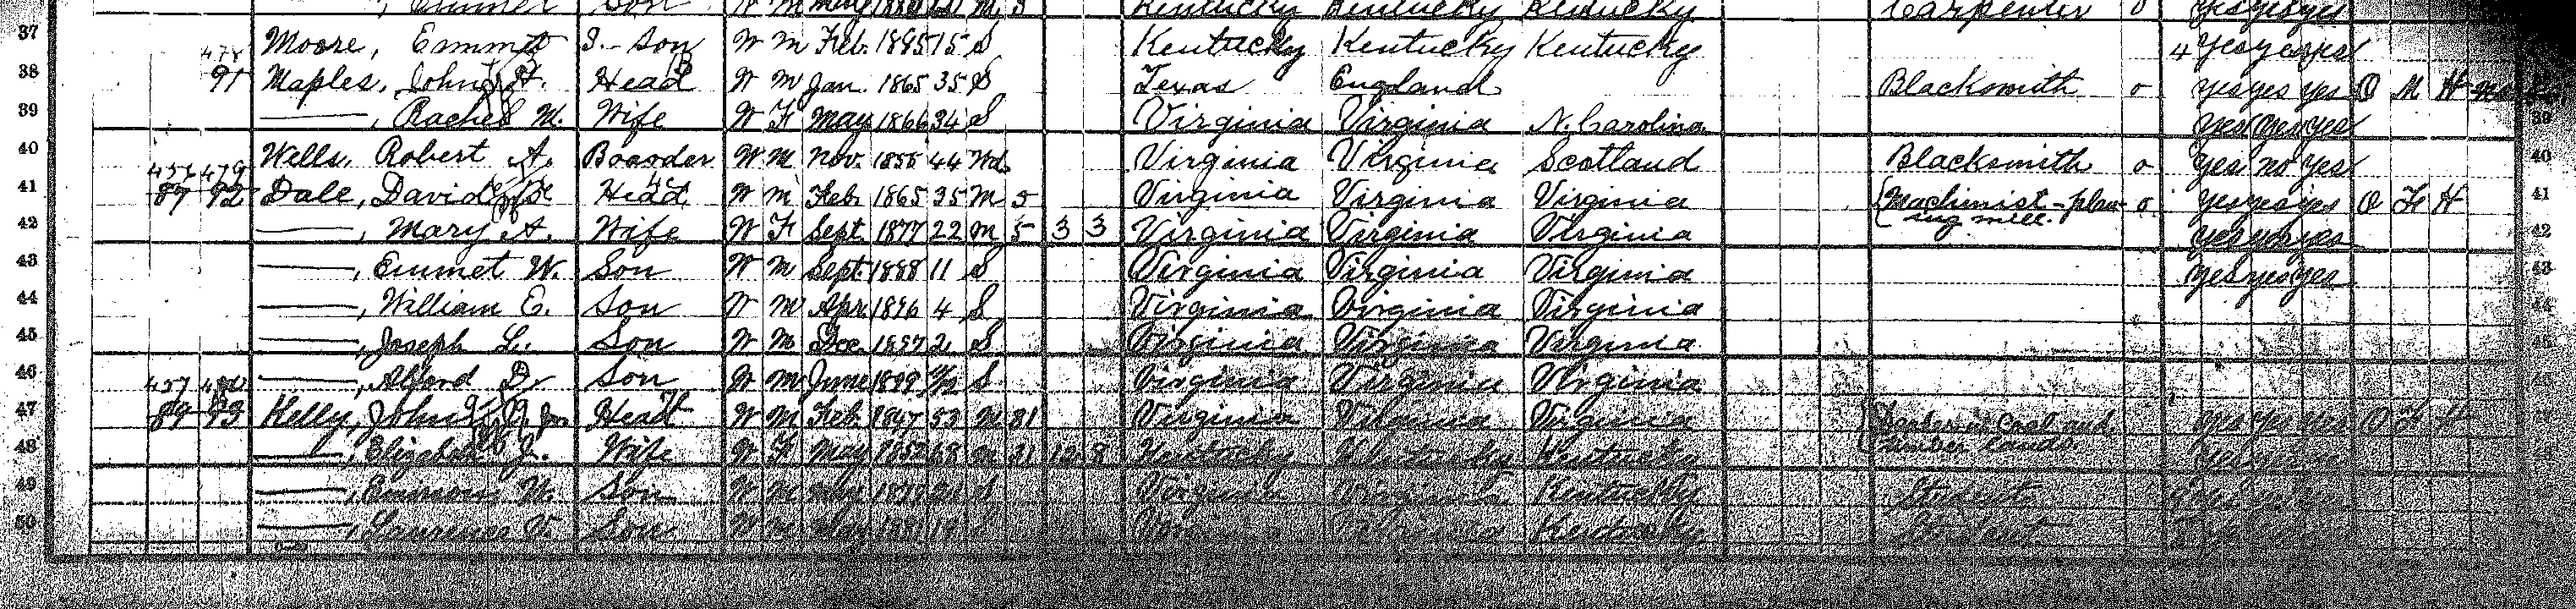 Son Kentucky Kentucky Kentucky Carpenter 0 yes yes yes
37 Moore, Emmet S. Son W M Feb. 1885 15 S Kentucky Kentucky Kentucky 4 yes yes yes
38 478 91 Maples, John H. Head W M Jan. 1865 35 S Texas England Blacksmith 0 yes yes yes O M H
39 ——, Rachel M. Wife W F May 1866 34 S Virginia Virginia N. Carolina yes yes yes 39
40 Wells, Robert A. Boarder W M Nov. 1855 44 Wd Virginia Virginia Scotland Blacksmith 0 yes no yes 40
41 456 479 87 92 Dale, David Head W M Feb. 1865 35 M 5 Virginia Virginia Virginia Machinist - plan- 0 yes yes yes O F H 41
ing mill.
42 ——, Mary A. Wife W F Sept. 1877 22 M 5 3 3 Virginia Virginia Virginia yes yes yes 42
43 ——, Emmet W. Son W M Sept. 1888 11 S Virginia Virginia Virginia yes yes yes 43
44 ——, William E. Son W M Apr. 1896 4 S Virginia Virginia Virginia 44
45 ——, Joseph L. Son W M Dec. 1897 2 S Virginia Virginia Virginia 45
46 ——, Alford D. Son W M June 1899 S Virginia Virginia Virginia
47 457 480 89 93 Kelly, John Jr. Head W M Feb. 1847 53 M 31 Virginia Virginia Virginia Dealer in Coal and yes yes yes O F H
timber lands
48 ——, Elizabeth J. Wife W F May M 31 12 8 Kentucky Kentucky Kentucky
49 ——, W. Son W M May 21 S Virginia Virginia Kentucky Student
50 ——, Laurence V. Son W M May 1881 S Virginia Virginia Kentucky Student